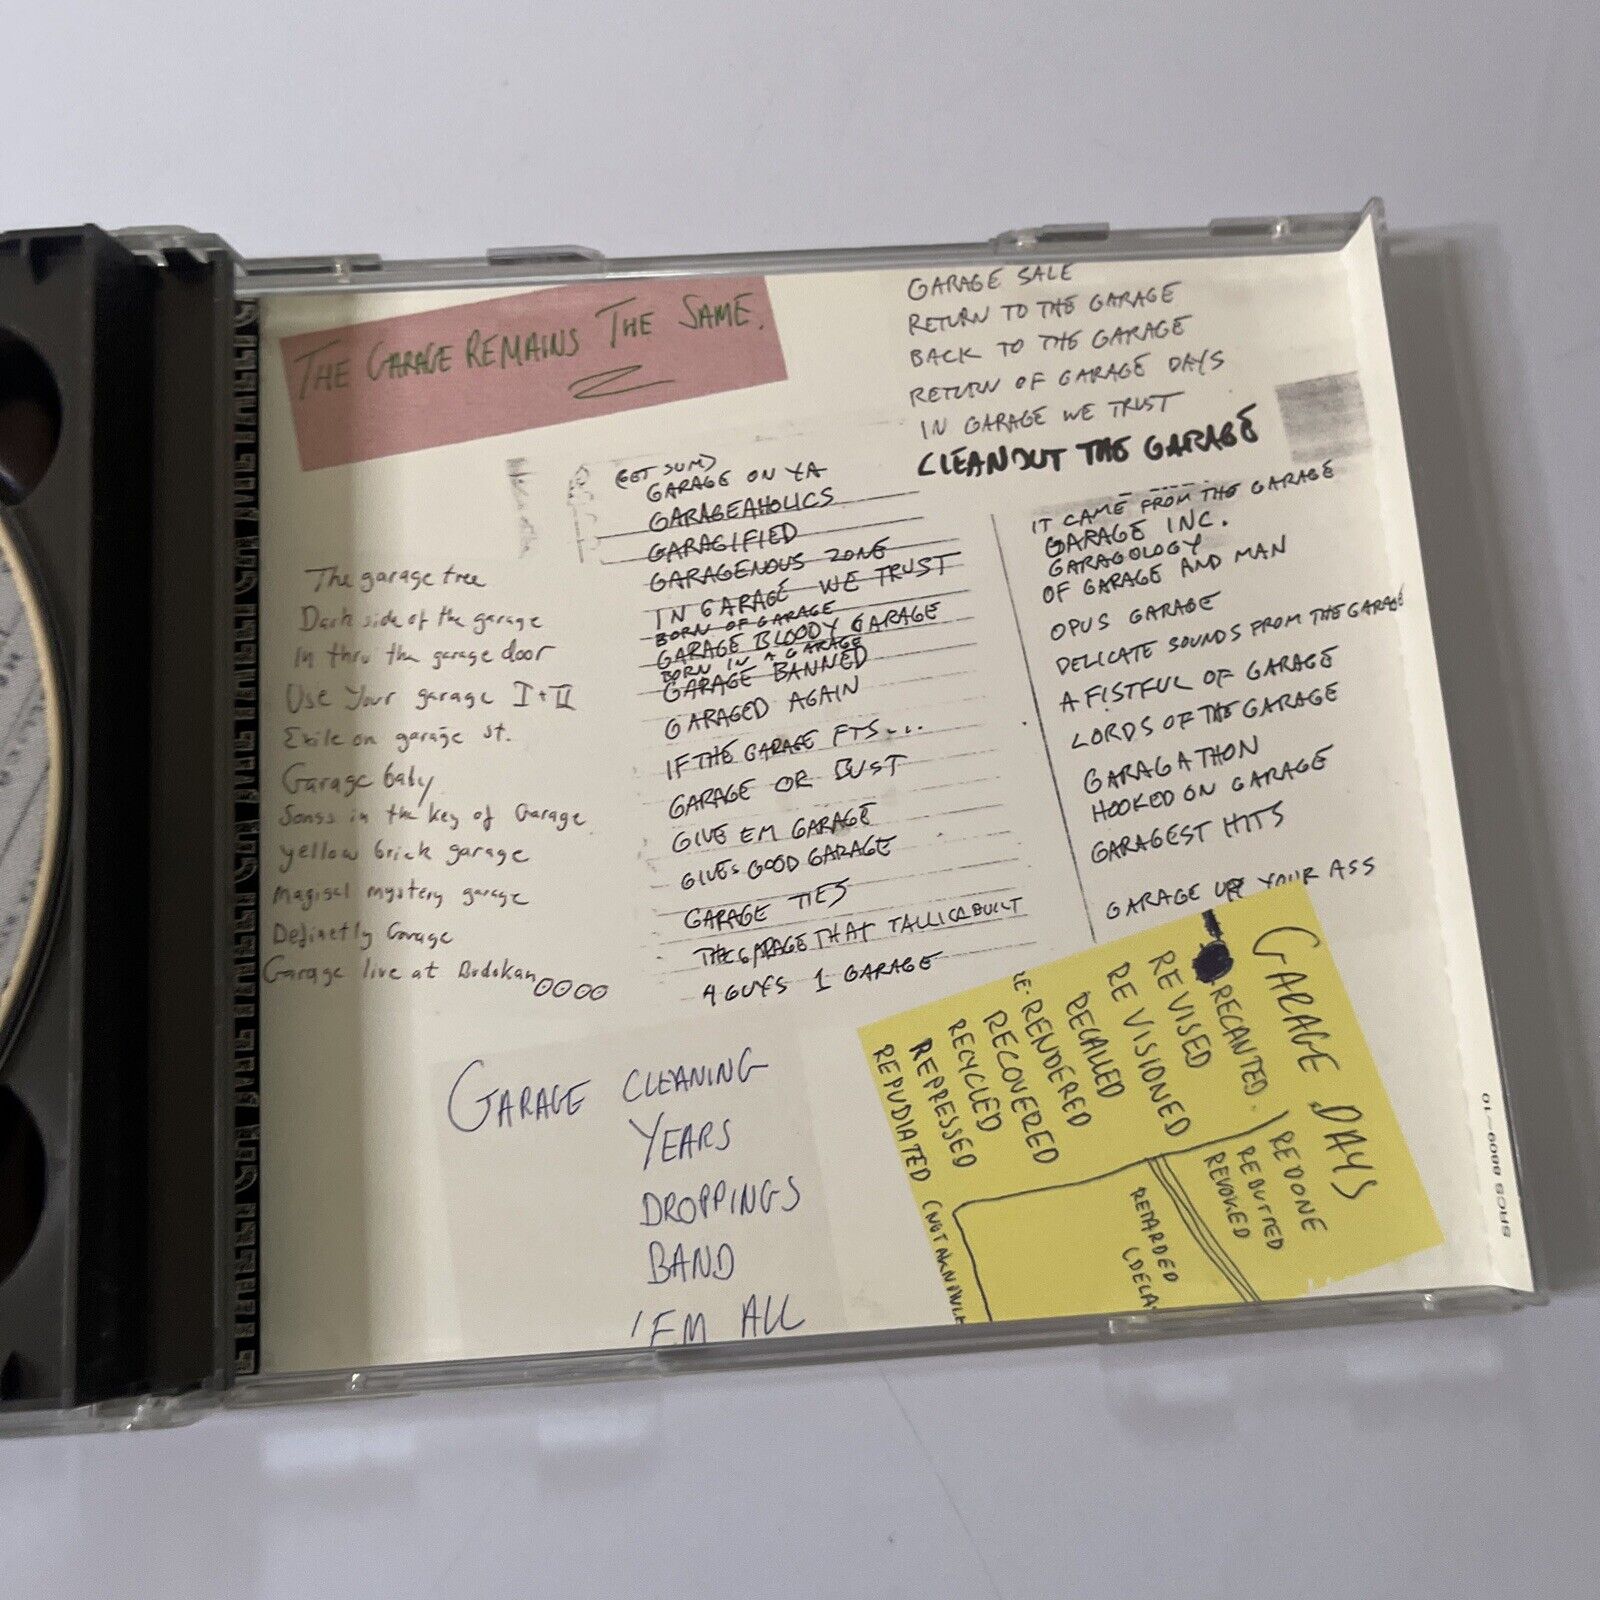 THE GARAGE REMAINS THE SAME.
GARAGE SALE
RETURN TO THE GARAGE
BACK TO THE GARAGE
RETURN OF GARAGE DAYS
IN GARAGE WE TRUST
CLEANOUT THE GARAGE
The garage tree
Dark side of the garage
In thru the garage door
Use Your garage I + II
Exile on garage st.
Garage baby
Songs in the key of Garage
yellow brick garage
Magical mystery garage
Definetly Garage
Garage live at Budokan
(GET SUM)
GARAGE ON YA
GARAGEAHOLICS
GARAGIFIED
GARAGENOUS ZONE
IN GARAGE WE TRUST
BORN OF GARAGE
GARAGE BLOODY GARAGE
BORN IN A GARAGE
GARAGE BANNED
GARAGED AGAIN
IF THE GARAGE FTS...
GARAGE OR BUST
GIVE EM GARAGE
GIVES GOOD GARAGE
GARAGE TIES
THE GARAGE THAT TALLICA BUILT
4 GUYS 1 GARAGE
IT CAME FROM THE GARAGE
GARAGE INC.
GARAGOLOGY
OF GARAGE AND MAN
OPUS GARAGE
DELICATE SOUNDS FROM THE GARAGE
A FISTFUL OF GARAGE
LORDS OF THE GARAGE
GARAGATHON
HOOKED ON GARAGE
GARAGEST HITS
GARAGE UP YOUR ASS
GARAGE CLEANING
YEARS
DROPPINGS
BAND
'EM ALL
GARAGE DAYS
RECANTED
REVISED
RE VISIONED
RECALLED
RE: RENDERED
RECOVERED
RECYCLED
REPRESSED
REPUDIATED
REDONE
REBUTTED
REVOKED
RETARDED